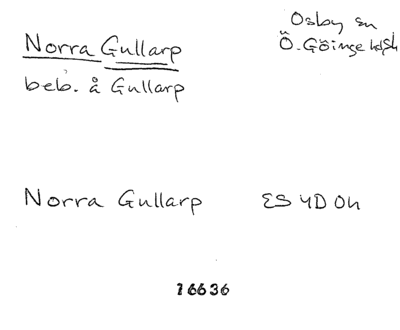 Norra Gullarp
Osby sn
Ö. Göinge hd
beb. å Gullarp
Norra Gullarp ES 4D 0h
16636